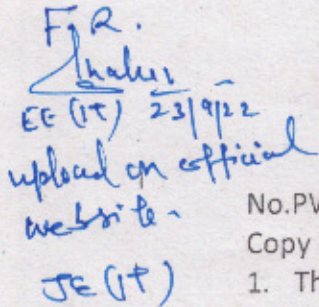 F.R.
EE (IT) 23/9/22
upload on official
website.
JE (IT)
No.PV
Copy
1. Th